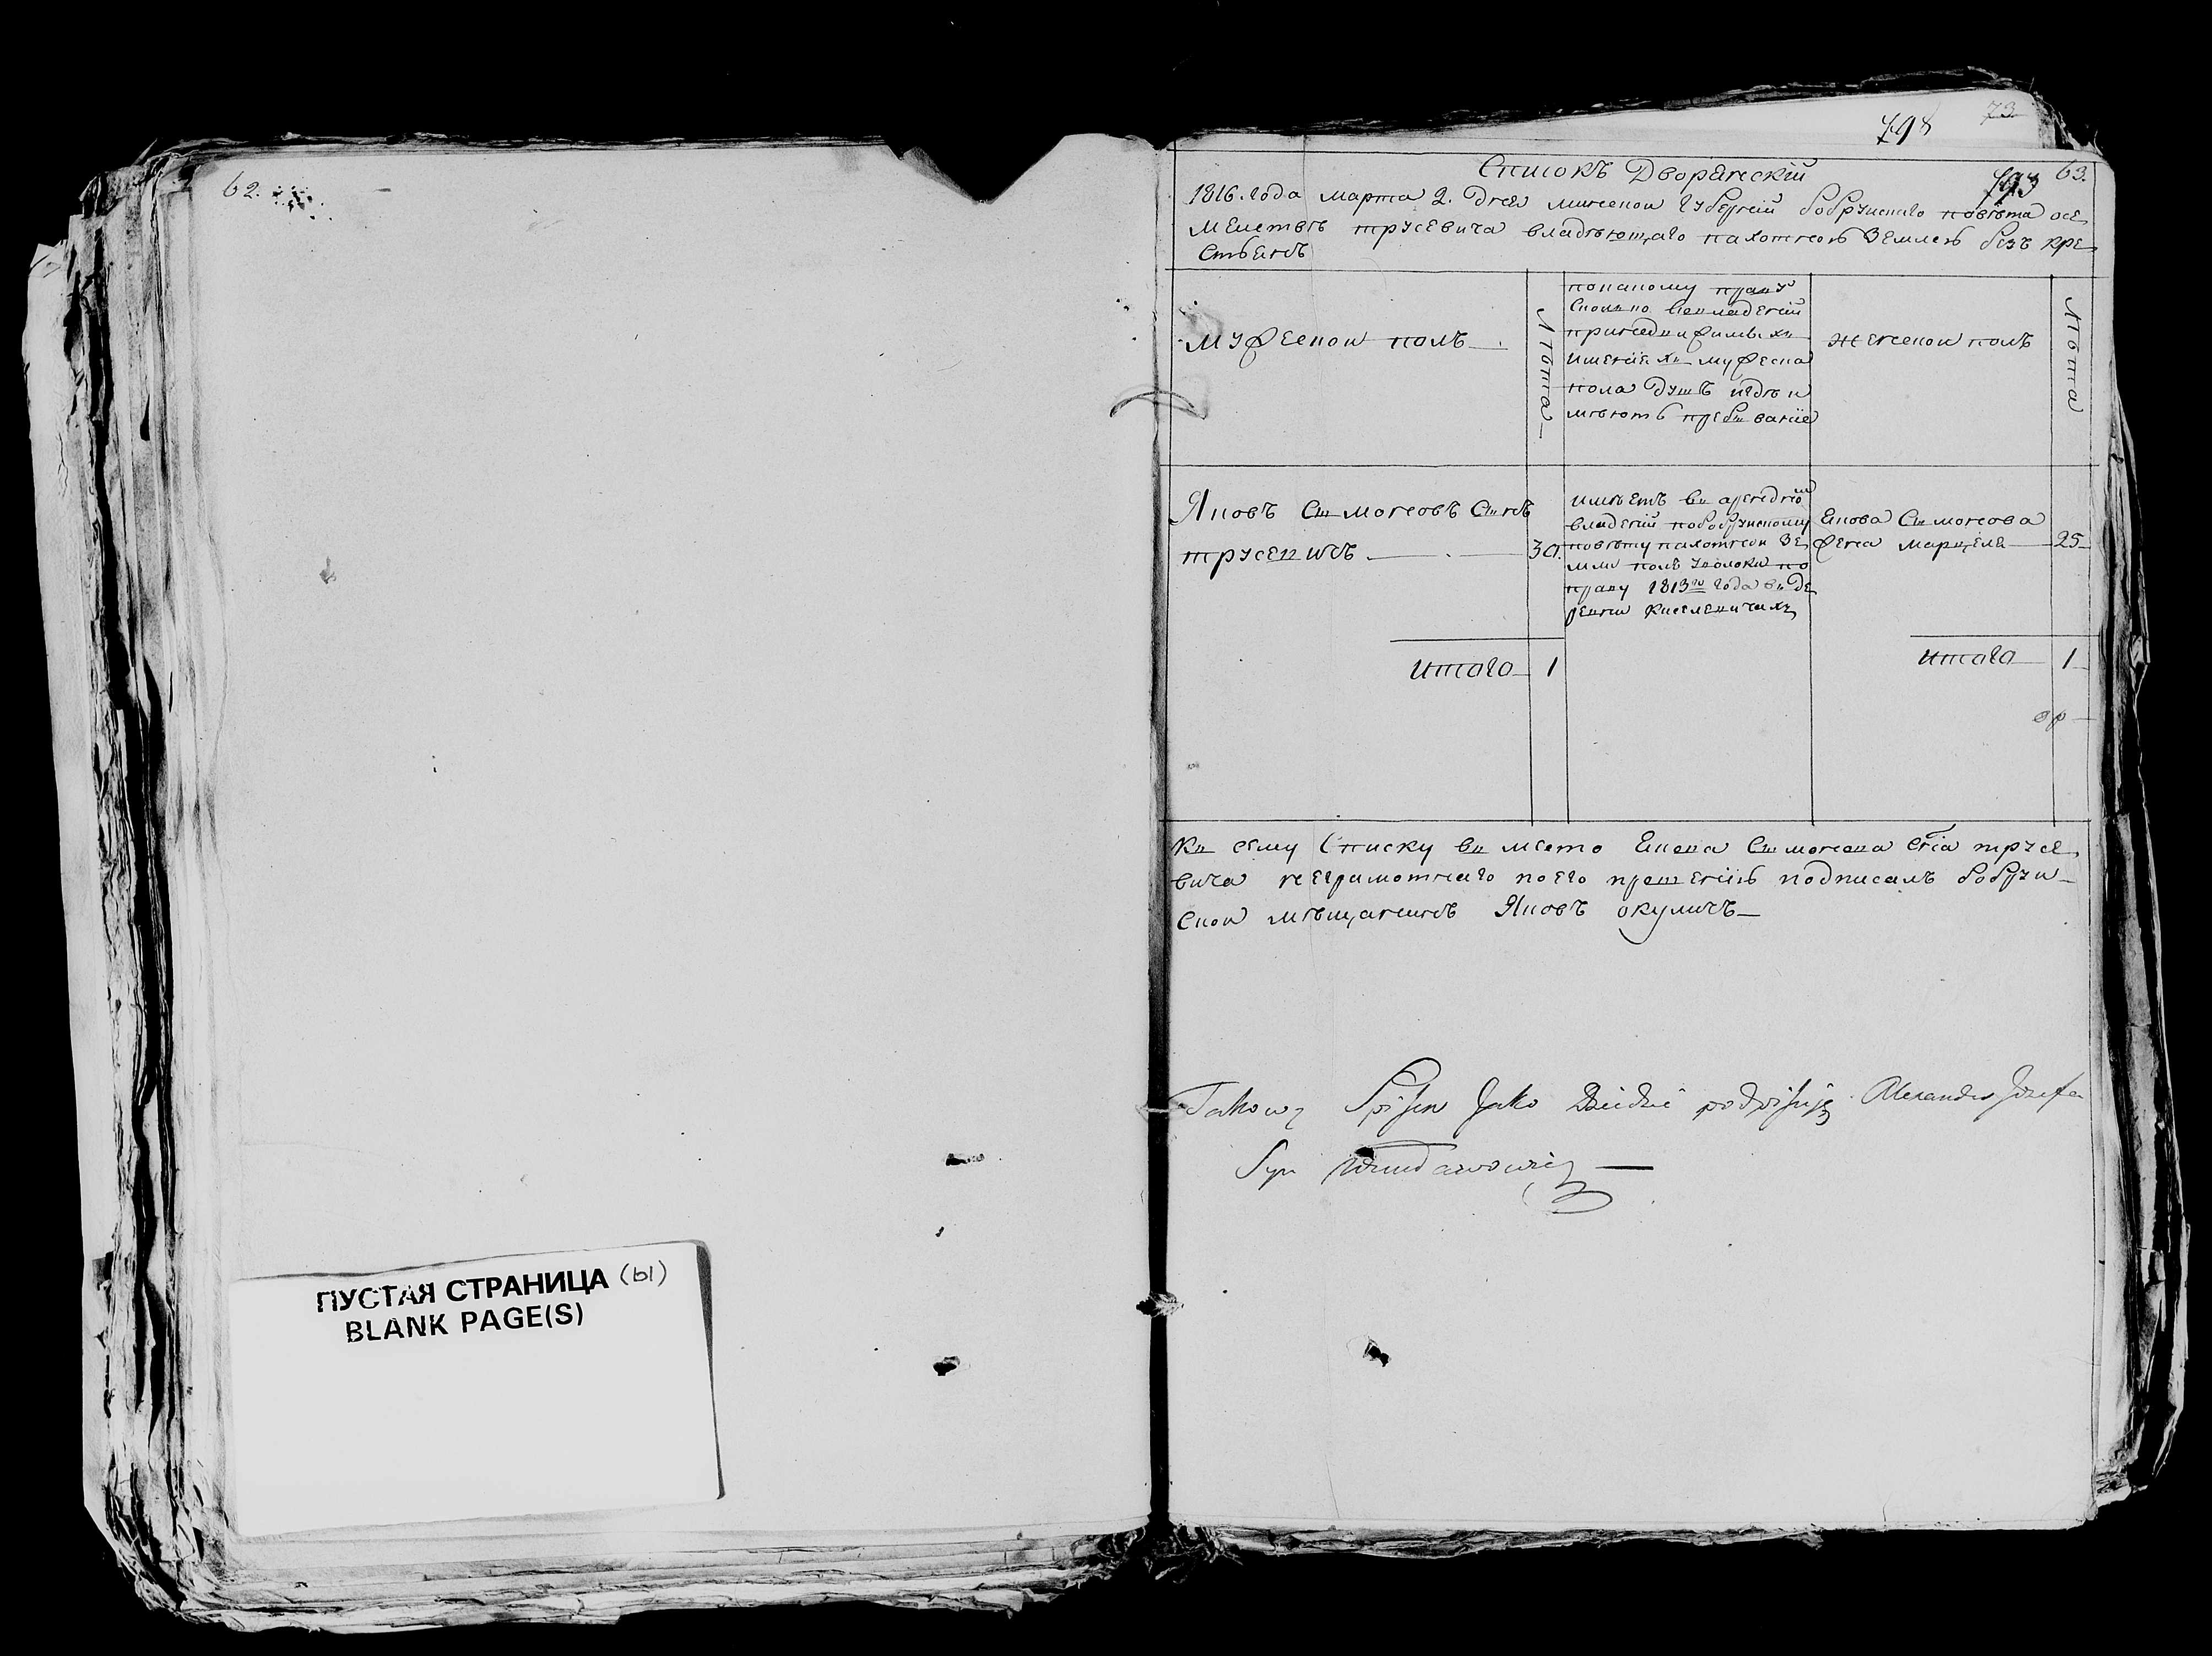 62.
ПУСТАЯ СТРАНИЦА (61)
BLANK PAGE(S)
73.
798
63.
793
Списокъ Дворянскій
1816. года марта 2. дня минской губерніи бобруйскаго повѣта осе
мействѣ трусевича владѣющаго пахотною землею безъ кре
стьянъ
мужеской полъ
Лѣта
по какому праву
сколько во владеніи
мужеска
пола душъ и гдѣ и
мѣютъ пребываніе
женской полъ
Лѣта
Яковъ Сымоновъ Сынъ
трусевичъ
30.
имѣетъ въ арендном
владеніи по бобруйскому
повѣту пахотной зе
мли полъ уволоки по
праву 1813го года въ де
ревни Киселевичахъ
Якова Сымонова
жена марцеля
25
итого 1
итого 1
Къ сему Списку въ место Якова Сымонова сна трусе
вича неграмотнаго по его прошенію подписалъ бобруй
ской мѣщанинъ Яковъ окуличъ
Takowy Spisek Jako podpisuję Alexander Józefa
Syn